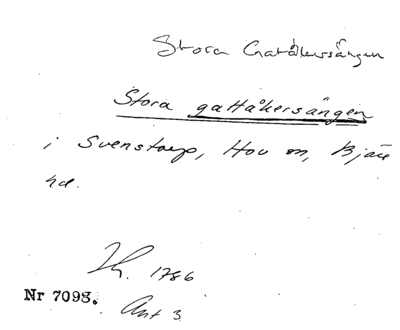 Stora Gatåkersången
Stora gattåkersången
i Svenstorp, Hov sn, Bjäre
hd.
1786
Nr 7093. Akt 3